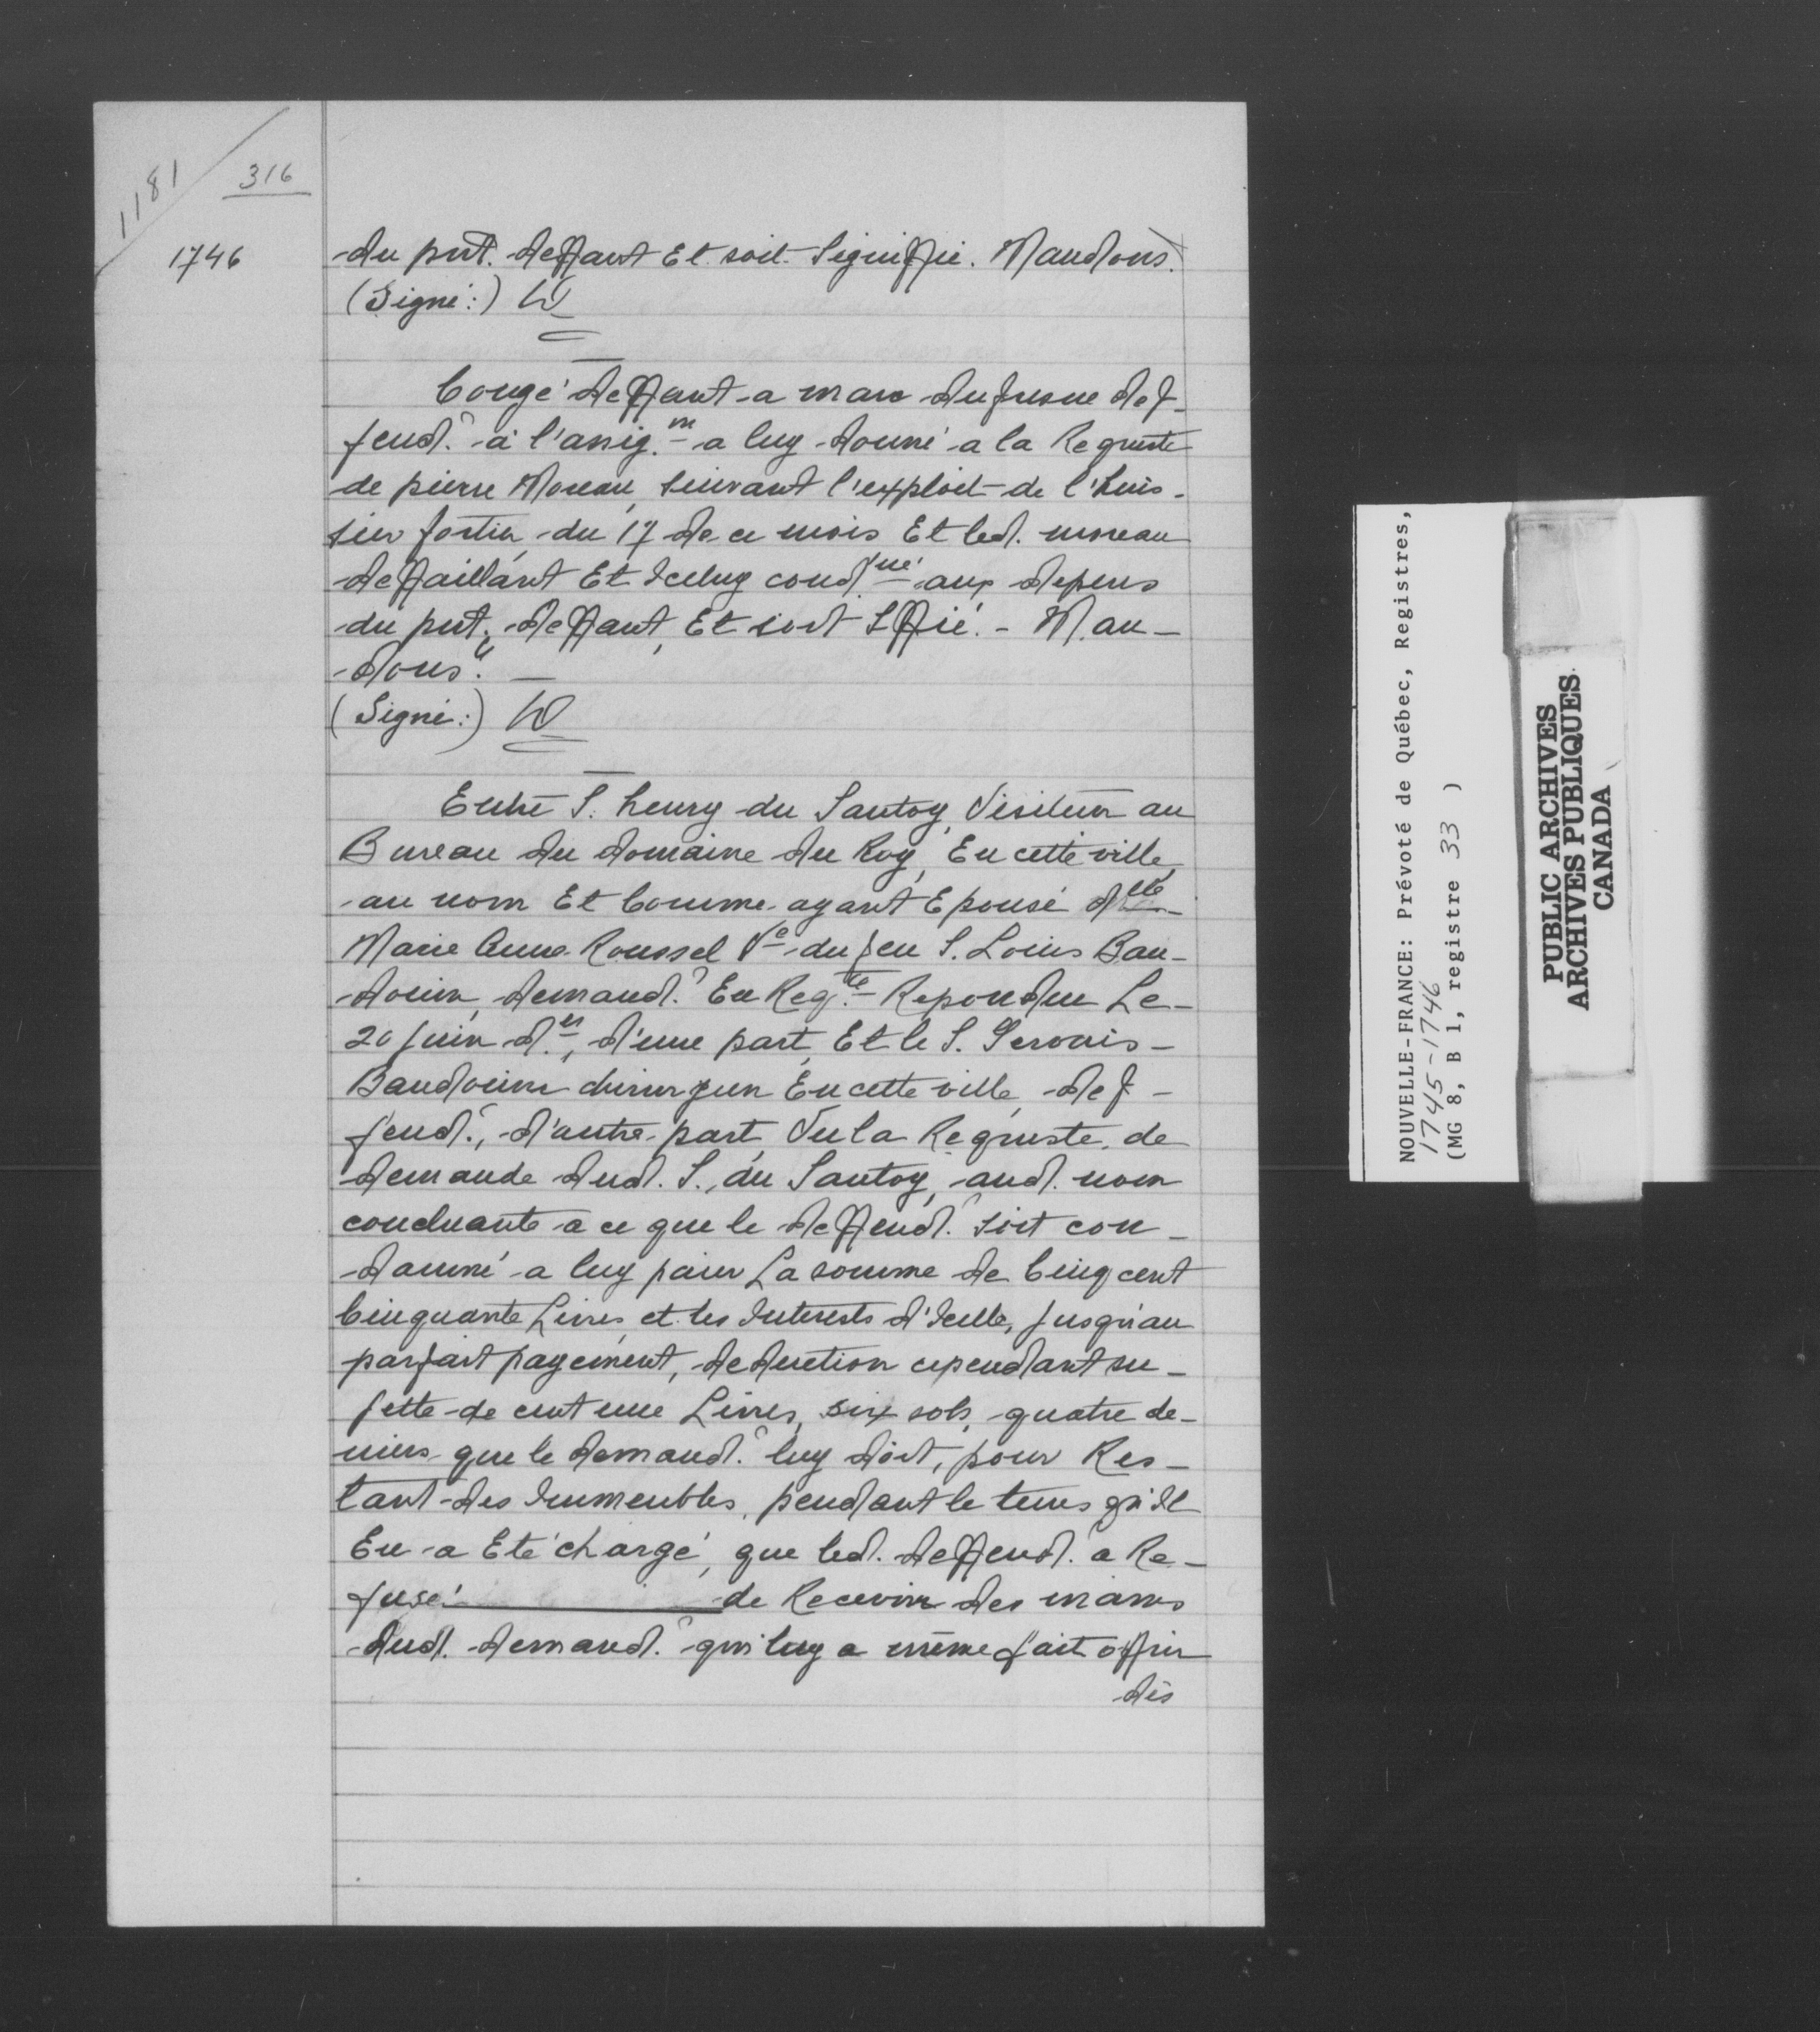 1181
316
1746
du pnt. deffaut Et soit Signiffié. Mandons.
(Signé:)
Congé deffaut a marc dufresne def-
fend.r à l'assig.m a luy donné a la Requeste
de pierre Moreau, suivant l'exploit de l'huis-
sier fortier, du 17 de ce mois Et led. moreau
deffaillant Et Iceluy cond.né aux depens
du pnt. deffaut, Et soit Sffié. - Man-
dons".
(Signé:)
Entre S. henry du Sautoy, Visiteur au
Bureau du domaine du Roy, En cette ville,
au nom Et Comme ayant Epousé dlle
Marie Anne Roussel Ve du feu S. Louis Bau-
douin, demand.r En Req.te Repondue Le
20 juin d.er, d'une part, Et le S. Gervais
Baudouin chirurgien En cette ville, def-
fend.r, d'autre part, Vu la Requeste, de
demande dud. S. du Sautoy, aud. nom
concluante a ce que le deffend.r soit con-
damné a luy païer La somme de Cinq cent
Cinquante Livres, et les Interests d'Icelle, jusqu'au
parfait payement, deduction cependant su-
jette de cent une Livres, six sols, quatre de-
niers que le demand.r luy doit, pour Res-
tant des Immeubles, pendant le tems qu'Il
En a Eté chargé, que led. deffend.r a Re-
fusé de Recevoir des mains
dud. demand.r qui luy a même fait offrir
dès
NOUVELLE-FRANCE: Prévoté de Québec, Registres,
1745-1746
(MG 8, B 1, registre 33 )
PUBLIC ARCHIVES
ARCHIVES PUBLIQUES
CANADA